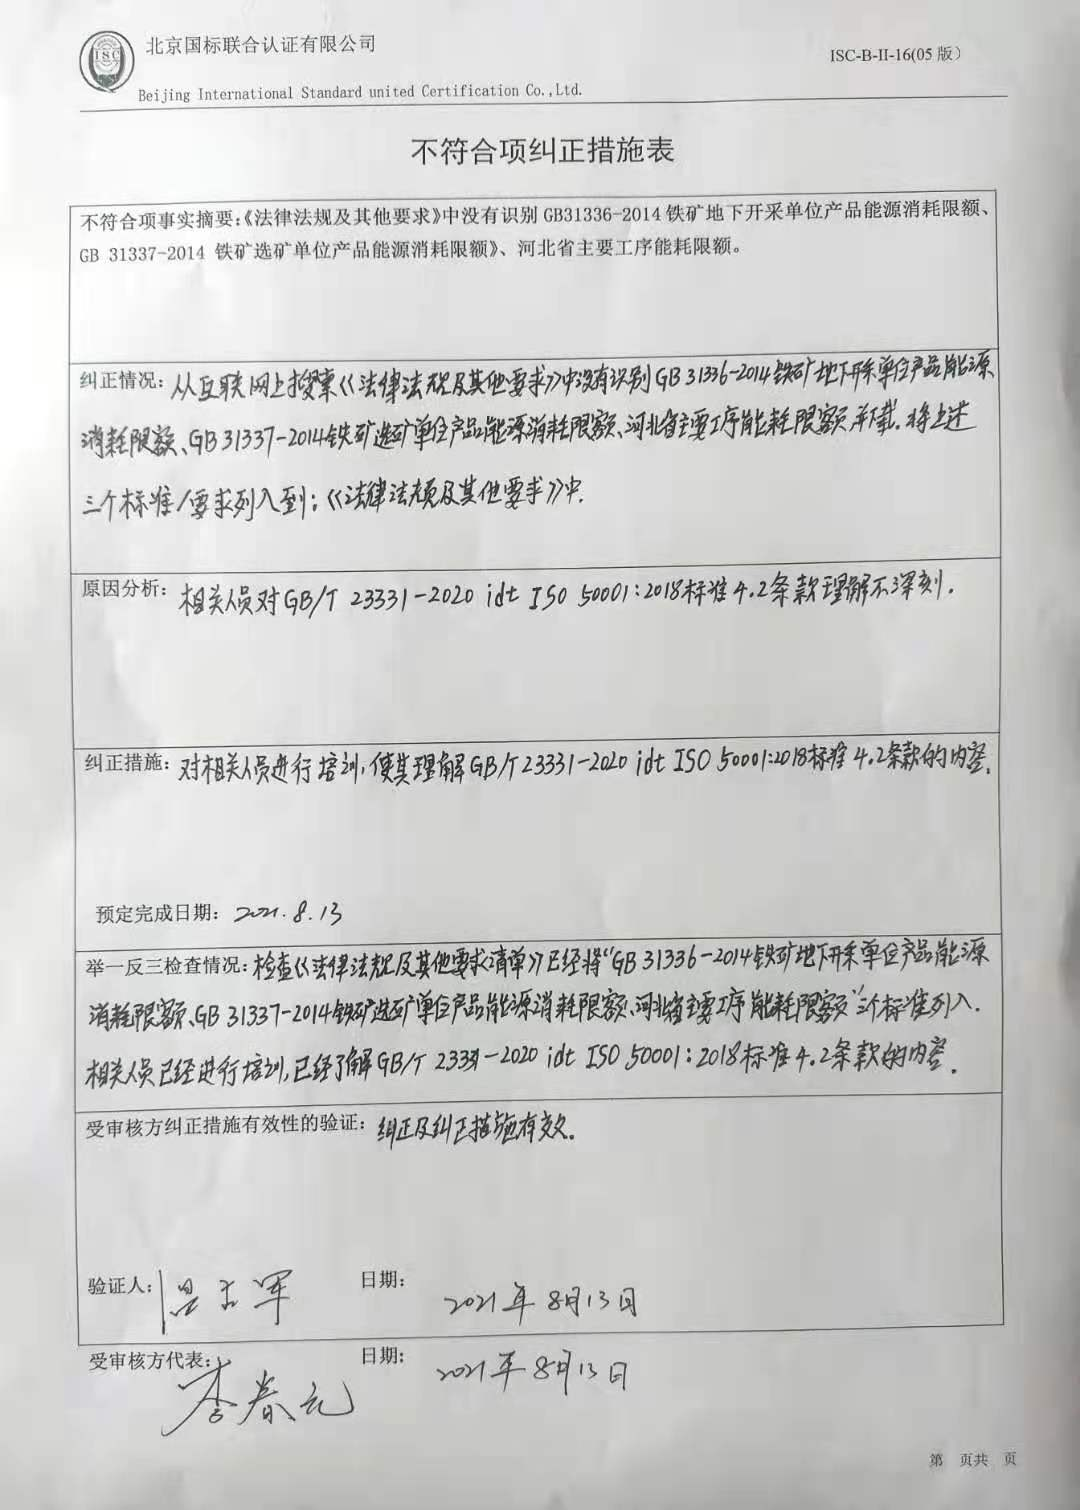 北京国标联合认证有限公司
ISC-B-II-16(05 版)
ISC
Beijing International Standard united Certification Co.,Ltd.
不符合项纠正措施表
不符合项事实摘要:《法律法规及其他要求》中没有识别 GB31336-2014 铁矿地下开采单位产品能源消耗限额、
GB 31337-2014 铁矿选矿单位产品能源消耗限额》、河北省主要工序能耗限额。
纠正情况: 从互联网上搜索《法律法规及其他要求》中没有识别GB 31336-2014铁矿地下开采单位产品能源
消耗限额、GB 31337-2014铁矿选矿单位产品能源消耗限额、河北省主要工序能耗限额并下载.将上述
三个标准/要求列入到:《法律法规及其他要求》中.
原因分析: 相关人员对GB/T 23331-2020 idt ISO 50001:2018标准4.2条款理解不深刻.
纠正措施: 对相关人员进行培训,使其理解GB/T 23331-2020 idt ISO 50001:2018标准4.2条款的内容.
预定完成日期: 2021.8.13
举一反三检查情况: 检查《法律法规及其他要求清单》已经将“GB 31336-2014铁矿地下开采单位产品能源
消耗限额、GB 31337-2014铁矿选矿单位产品能源消耗限额、河北省主要工序能耗限额”三个标准列入.
相关人员已经进行培训,已经了解GB/T 23331-2020 idt ISO 50001:2018标准4.2条款的内容.
受审核方纠正措施有效性的验证: 纠正及纠正措施有效.
验证人: 日期: 2021年8月13日
受审核方代表: 李春元 日期: 2021年8月13日
第 页共 页